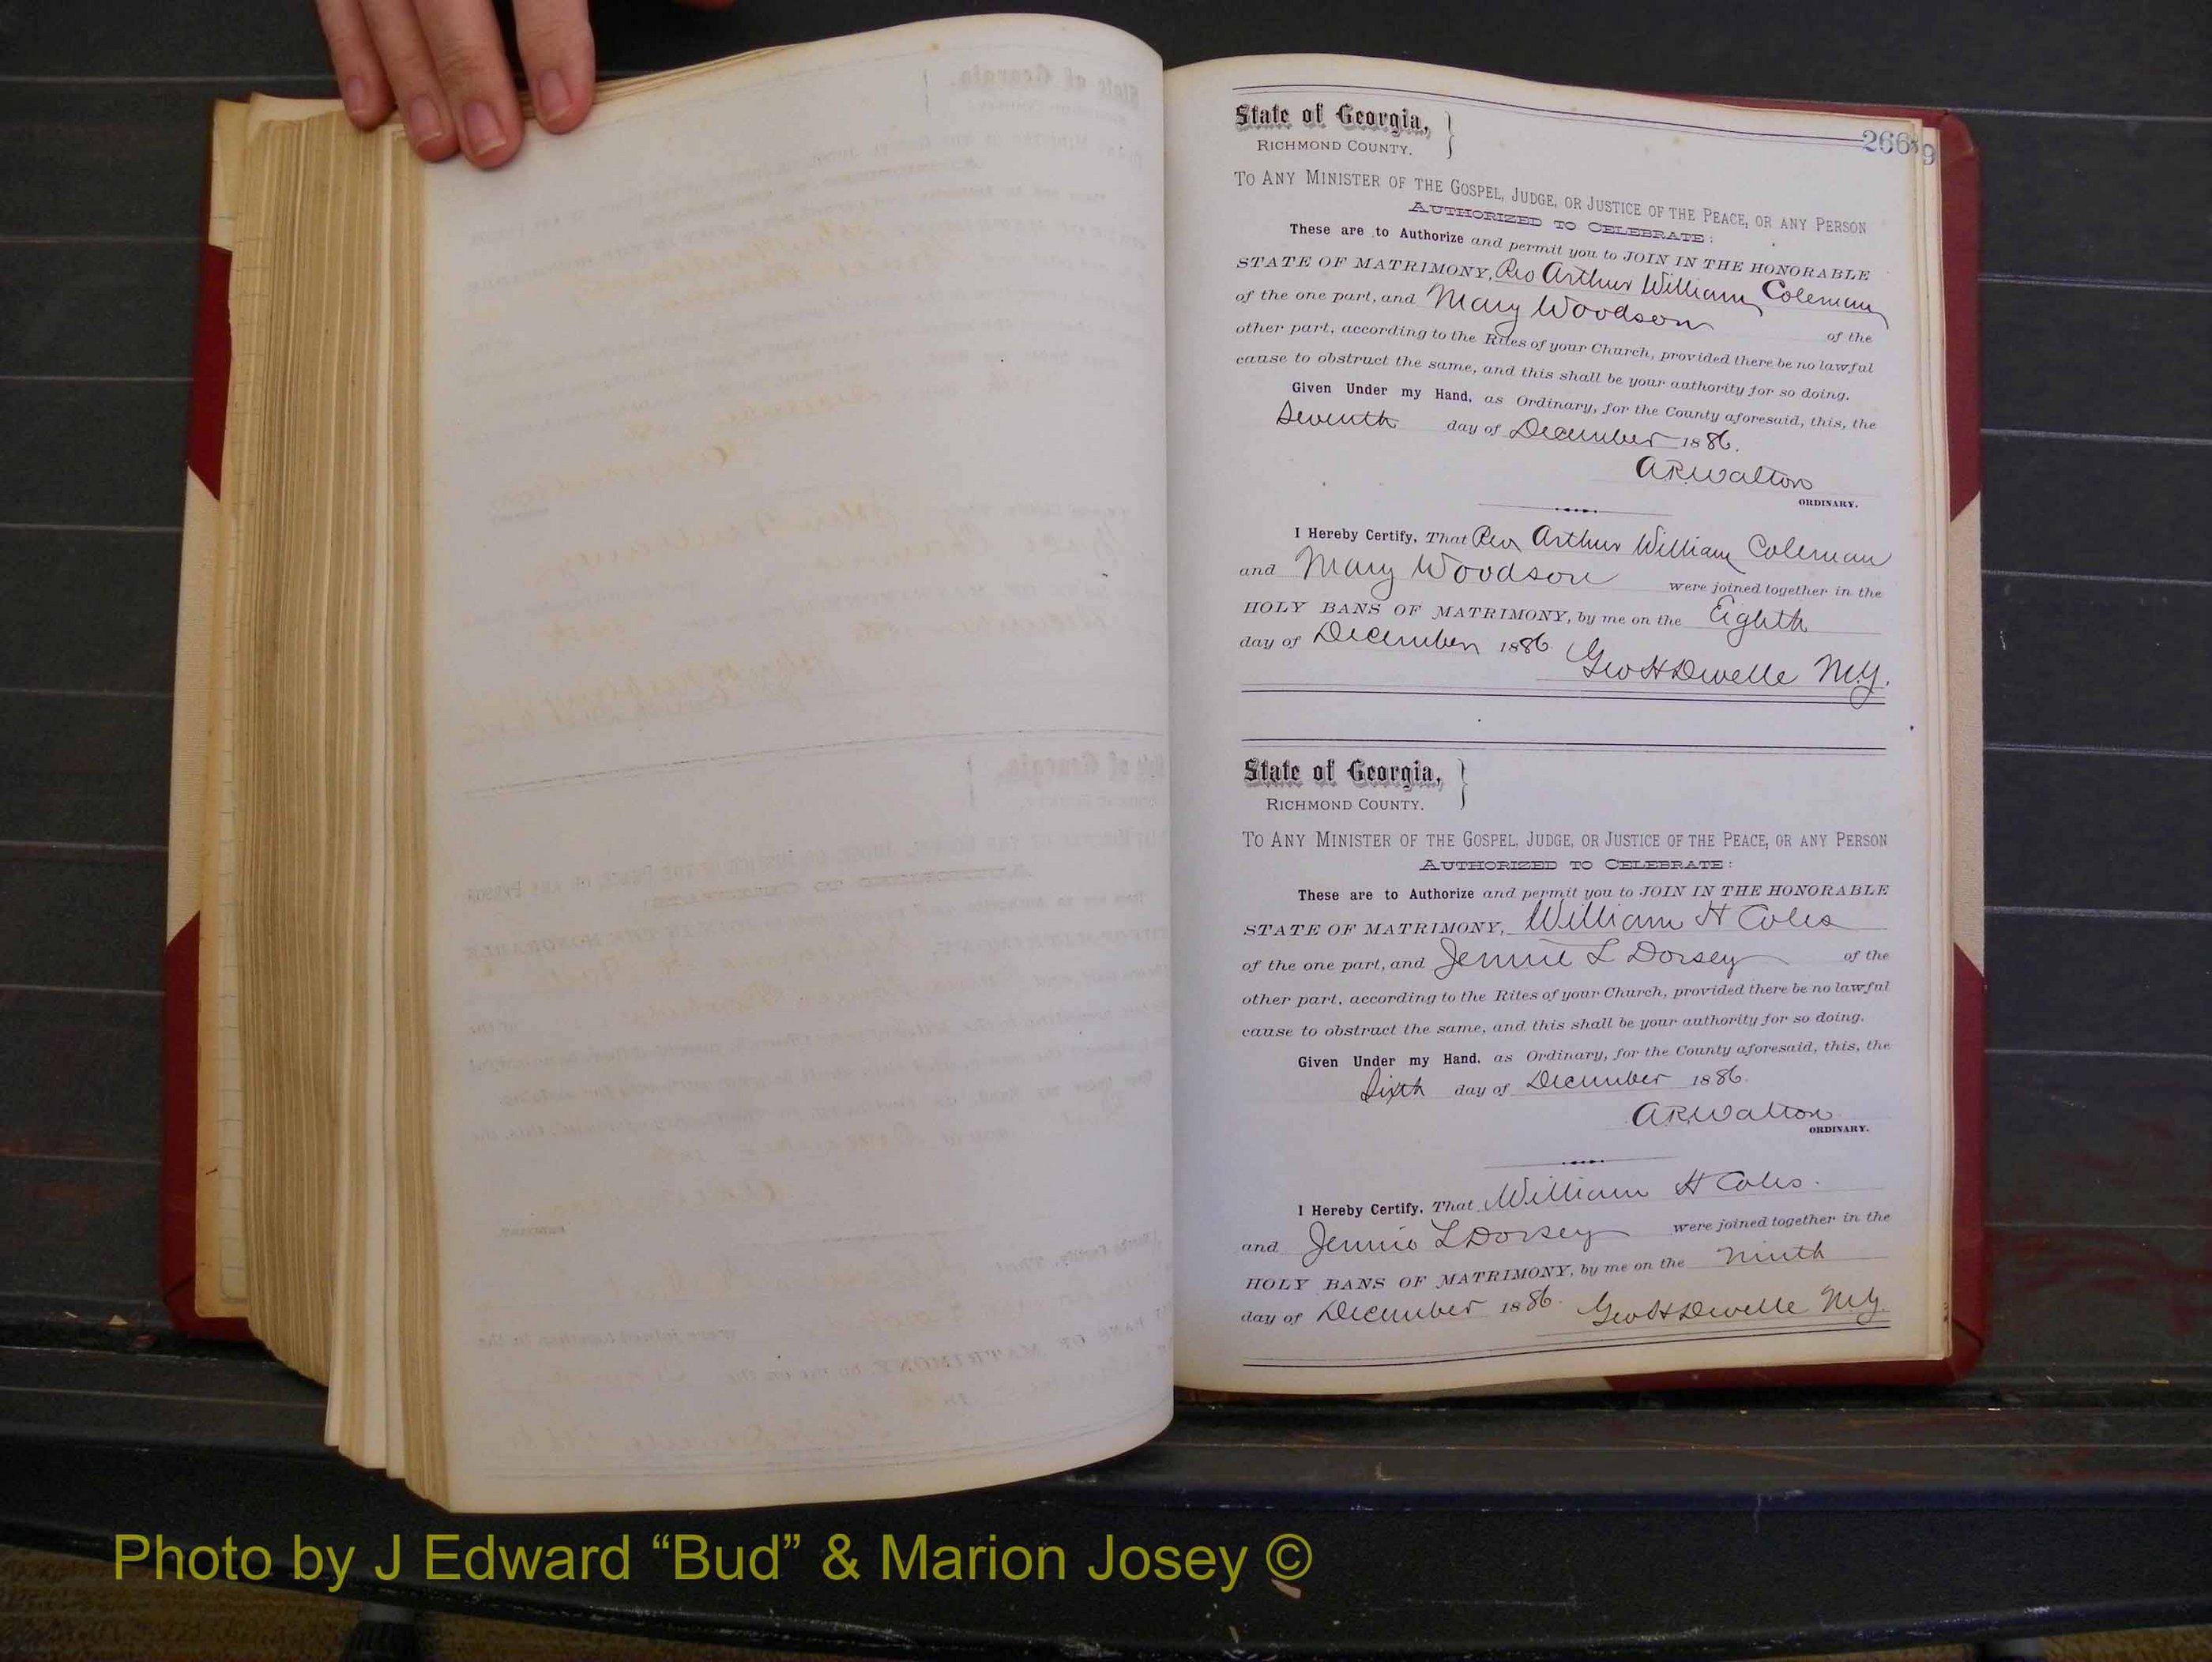 State of Georgia,
RICHMOND COUNTY.
266
9
TO ANY MINISTER OF THE GOSPEL, JUDGE, OR JUSTICE OF THE PEACE, OR ANY PERSON
AUTHORIZED TO CELEBRATE:
These are to Authorize and permit you to JOIN IN THE HONORABLE
STATE OF MATRIMONY, Rev Arthur William Coleman
of the one part, and Mary Woodson of the
other part, according to the Rites of your Church, provided there be no lawful
cause to obstruct the same, and this shall be your authority for so doing.
Given Under my Hand, as Ordinary, for the County aforesaid, this, the
Seventh day of December 1886.
A.R. Walton
ORDINARY.
I Hereby Certify, That Rev Arthur William Coleman
and Mary Woodson were joined together in the
HOLY BANS OF MATRIMONY, by me on the Eighth
day of December 1886. Geo H Dwelle M.G.
State of Georgia,
RICHMOND COUNTY.
TO ANY MINISTER OF THE GOSPEL, JUDGE, OR JUSTICE OF THE PEACE, OR ANY PERSON
AUTHORIZED TO CELEBRATE:
These are to Authorize and permit you to JOIN IN THE HONORABLE
STATE OF MATRIMONY, William H Coles
of the one part, and Jennie L Dorsey of the
other part, according to the Rites of your Church, provided there be no lawful
cause to obstruct the same, and this shall be your authority for so doing.
Given Under my Hand, as Ordinary, for the County aforesaid, this, the
Sixth day of December 1886.
A.R. Walton
ORDINARY.
I Hereby Certify, That William H Coles.
and Jennie L Dorsey were joined together in the
HOLY BANS OF MATRIMONY, by me on the Ninth
day of December 1886. Geo H Dwelle M.G.
Photo by J Edward “Bud” & Marion Josey ©